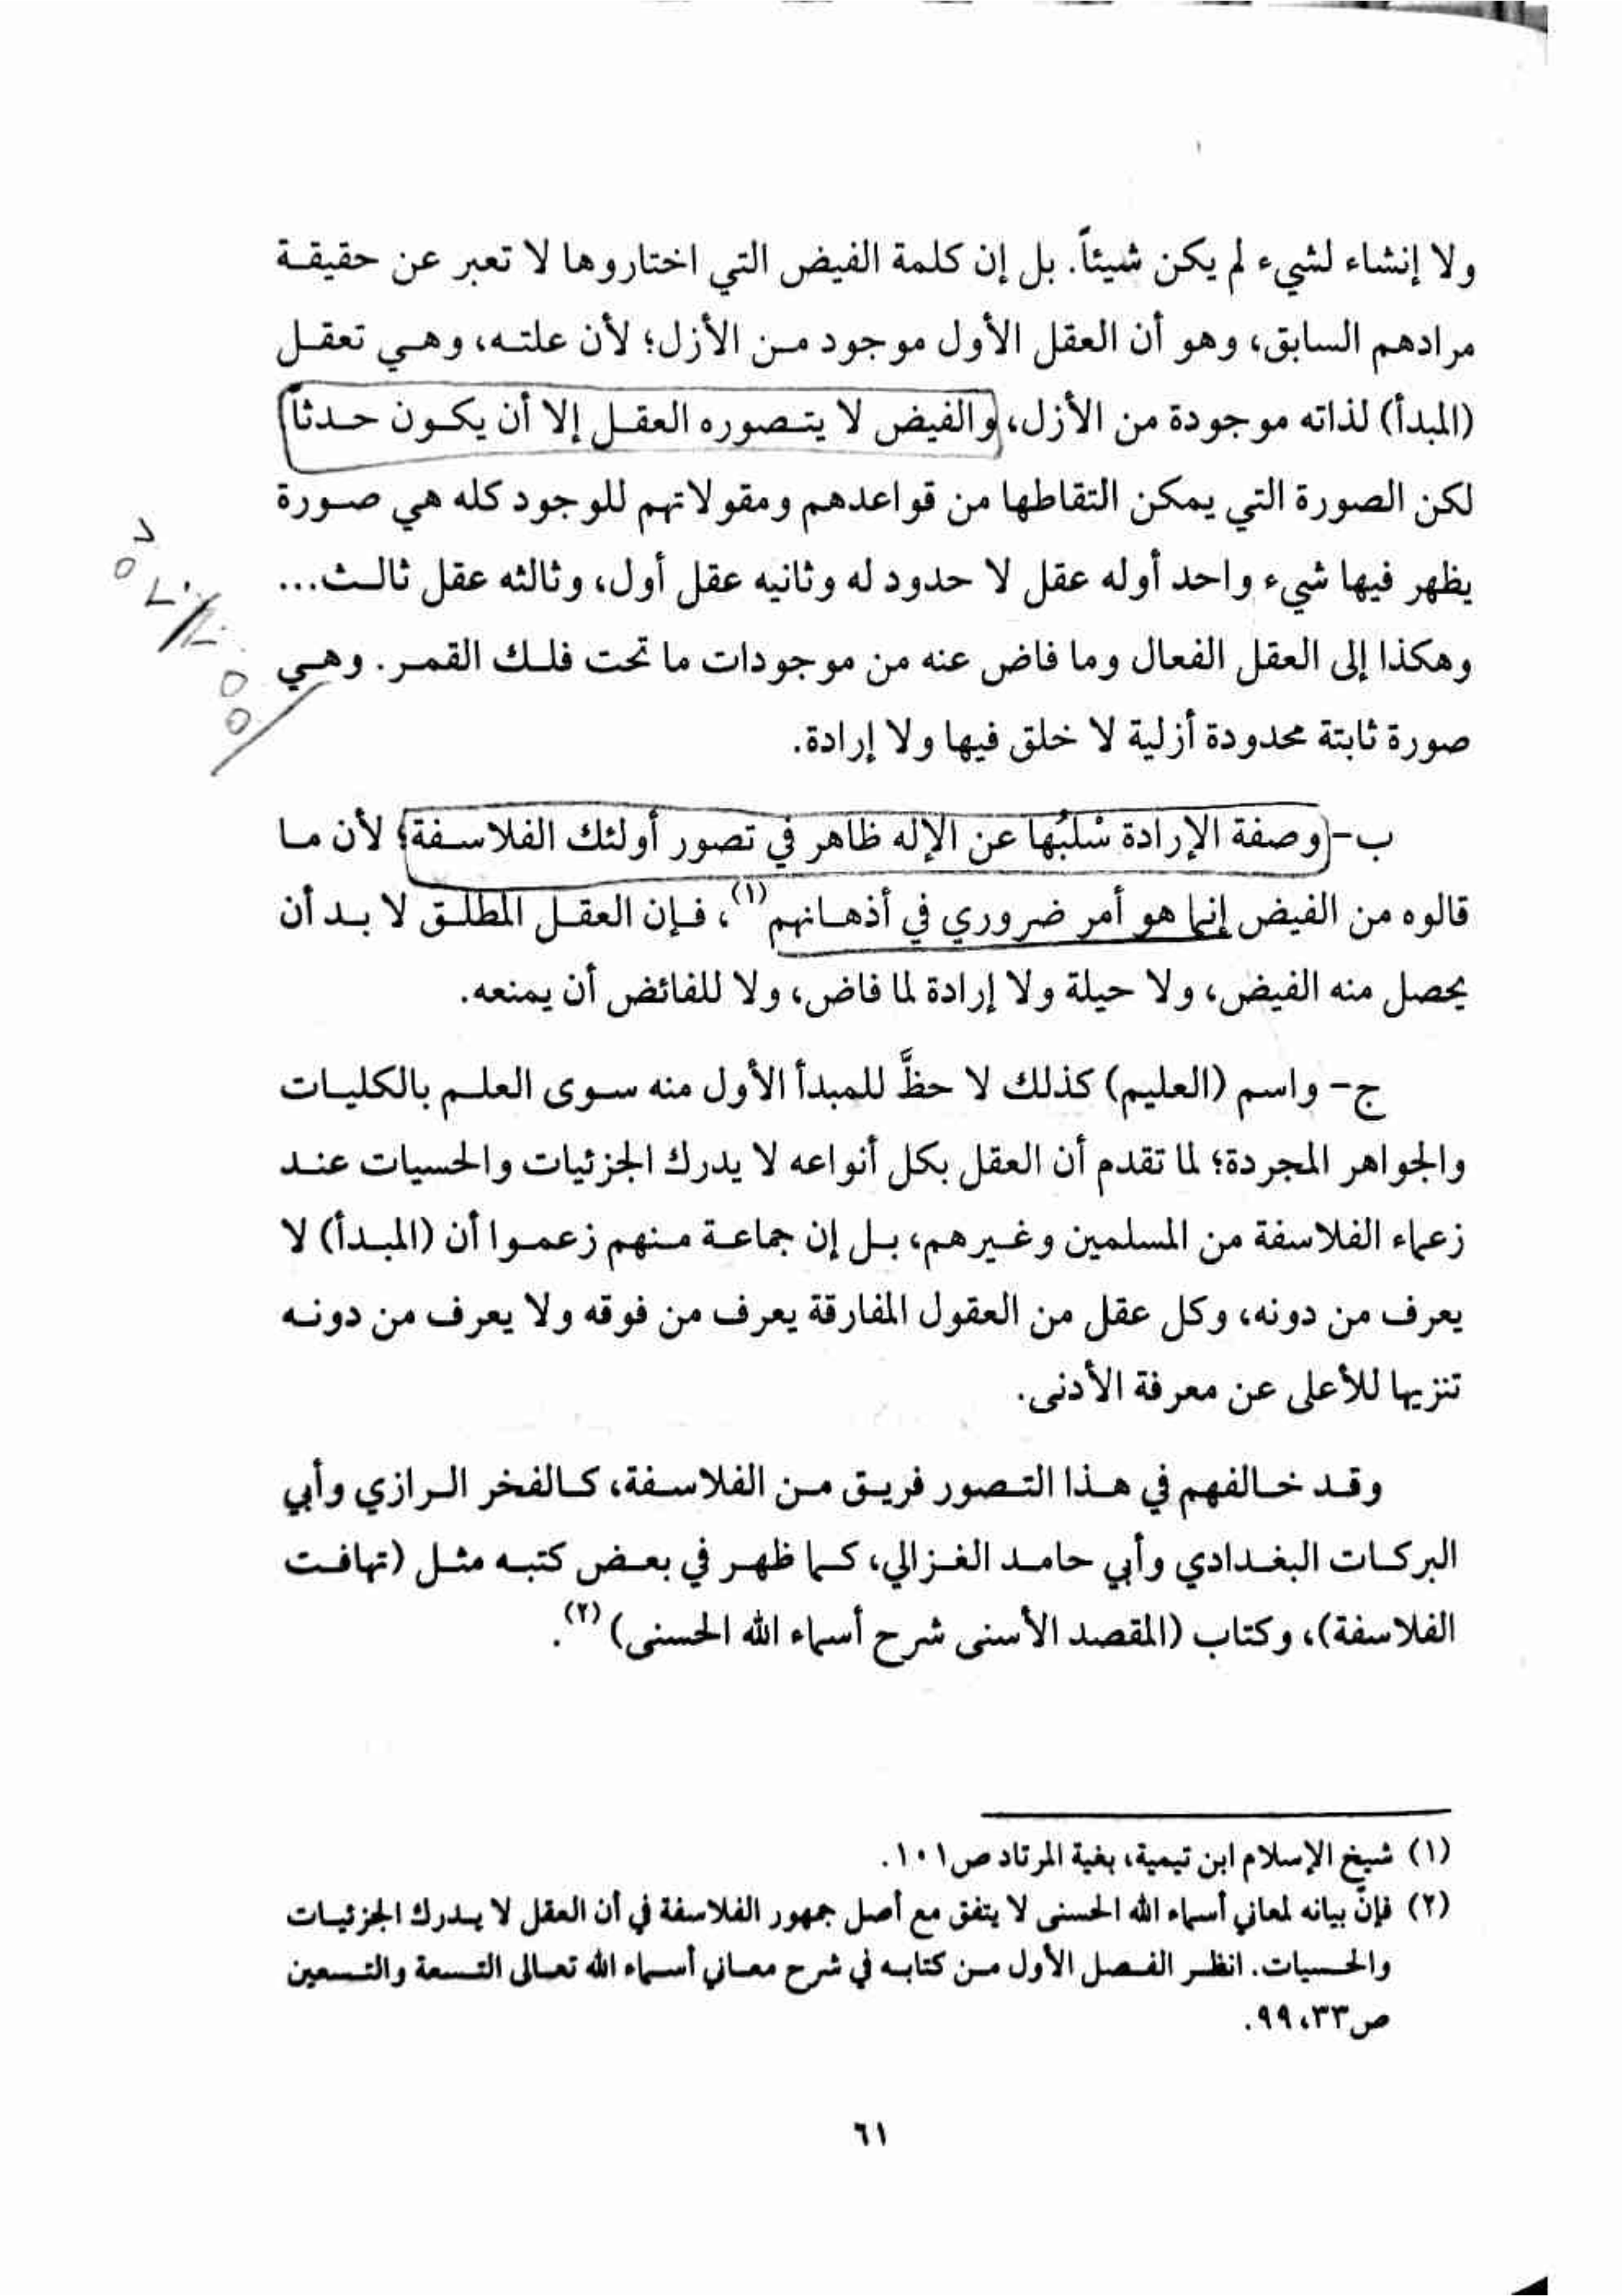 ولا إنشاء لشيء لم يكن شيئاً. بل إن كلمة الفيض التي اختاروها لا تعبر عن حقيقة
مرادهم السابق، وهو أن العقل الأول موجود من الأزل؛ لأن علته، وهي تعقل
(المبدأ) لذاته موجودة من الأزل، والفيض لا يتصوره العقل إلا أن يكون حدثاً
لكن الصورة التي يمكن التقاطها من قواعدهم ومقولاتهم للوجود كله هي صورة
يظهر فيها شيء واحد أوله عقل لا حدود له وثانيه عقل أول، وثالثه عقل ثالث...
وهكذا إلى العقل الفعال وما فاض عنه من موجودات ما تحت فلك القمر. وهي
صورة ثابتة محدودة أزلية لا خلق فيها ولا إرادة.
ب- وصفة الإرادة سْلبُها عن الإله ظاهر في تصور أولئك الفلاسفة؛ لأن ما
قالوه من الفيض إنما هو أمر ضروري في أذهانهم(١)، فإن العقل المطلق لا بد أن
يحصل منه الفيض، ولا حيلة ولا إرادة لما فاض، ولا للفائض أن يمنعه.
ج- واسم (العليم) كذلك لا حظَّ للمبدأ الأول منه سوى العلم بالكليات
والجواهر المجردة؛ لما تقدم أن العقل بكل أنواعه لا يدرك الجزئيات والحسيات عند
زعماء الفلاسفة من المسلمين وغيرهم، بل إن جماعة منهم زعموا أن (المبدأ) لا
يعرف من دونه، وكل عقل من العقول المفارقة يعرف من فوقه ولا يعرف من دونه
تنزيها للأعلى عن معرفة الأدنى.
وقد خالفهم في هذا التصور فريق من الفلاسفة، كالفخر الرازي وأبي
البركات البغدادي وأبي حامد الغزالي، كما ظهر في بعض كتبه مثل (تهافت
الفلاسفة)، وكتاب (المقصد الأسنى شرح أسماء الله الحسنى) (٢).
(١) شيخ الإسلام ابن تيمية، بغية المرتاد ص١٠١.
(٢) فإنّ بيانه لمعاني أسماء الله الحسنى لا يتفق مع أصل جمهور الفلاسفة في أن العقل لا يدرك الجزئيات
والحسيات. انظر الفصل الأول من كتابه في شرح معاني أسماء الله تعالى التسعة والتسعين
ص٣٣، ٩٩.
٦١